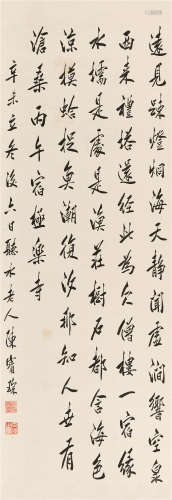 遠見疎燈烟海天靜聞虛澗響空泉
西來禮塔還經此為欠僧樓一宿緣
水是處是漁莊樹石都含海色
涼摸蛤捉魚潮復汐那知人世有
滄桑丙午宿極樂寺
辛未立冬後六日聽水老人陳寶琛